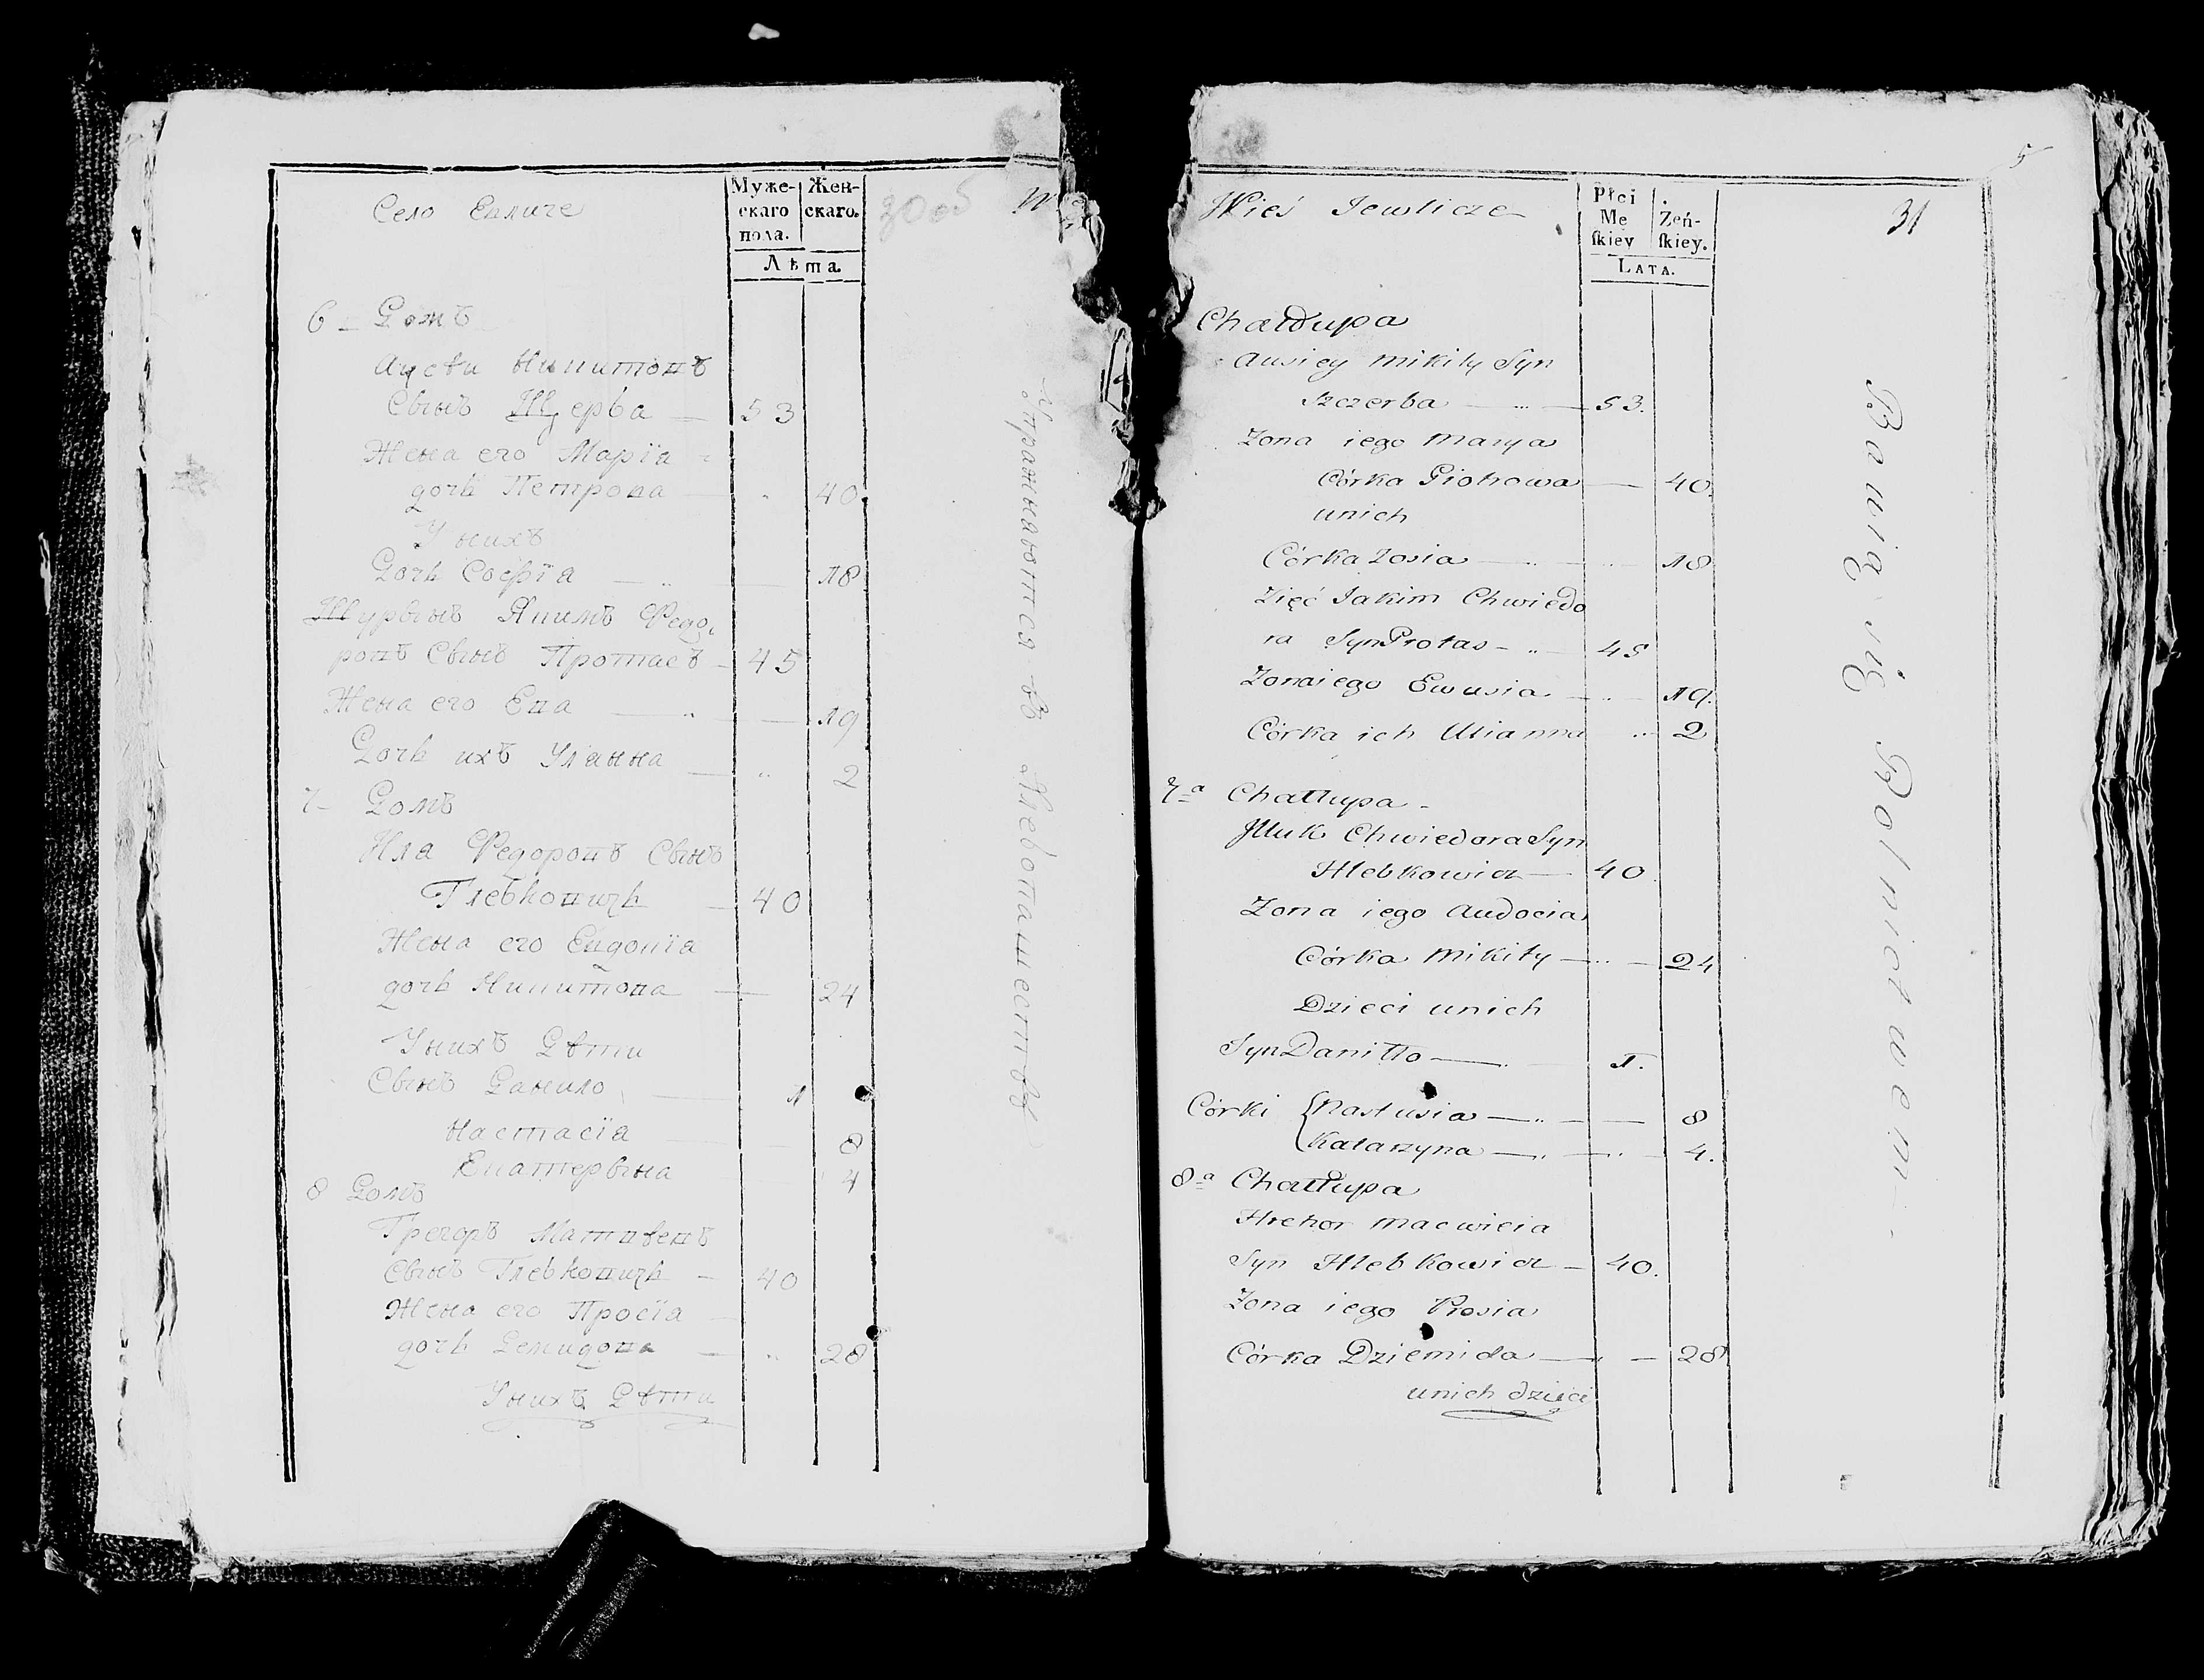 Село Евличе
Муже-
скаго
пола.
Жен-
скаго.
Лѣта.
30 об
6 – Домъ
Аусѣи Никитовъ
Сынъ Щерба — 53
Жена его Марїа
дочь Петрова — 40
У нихъ
Дочь Софїа — 18
Шурынъ Якимъ Федо,
ровъ Сынъ Протасъ — 45
Жена его Ева — 19
Дочь ихъ Уланна — 2
7 – Домъ
Иля Федоровъ Сынъ
Глебковичь — 40
Жена его Евдокїа
дочь Никитова — 24
У нихъ Дѣти
Сынъ Данило — 1
Настасїа — 8
Екатерына — 4
8 Домъ
Грегоръ Матвѣевъ
Сынъ Глебковичь — 40
Жена его Просїа
дочь Демидова — 28
У нихъ Дѣти
Упражнаются въ Хлебопашествѣ
5
Wieś Iewlicze
Płci
Me
ſkiey
Zeń-
ſkiey.
LATA.
31
Chałłupa
Ausiey Mikity Syn
Szczerba — 53.
Zona iego Marya
Córka Piotrowa — 40.
unich
Córka Zosia — 18
Zięć Iakim Chwiedo
ra Syn Protas — 45
Zona iego Ewusia — 19.
Córka ich Ulianna — 2
7a Chałłupa –
Illuk Chwiedora Syn
Hlebkowicz — 40.
Zona iego Audocia
Córka Mikity — 24
Dzieci unich
Syn Daniłło — 1.
Córki { Nastusia — 8
Katarzyna — 4.
8a Chałłupa
Hrehor Macwieia
Syn Hlebkowicz — 40.
Zona iego Prosia
Córka Dziemida — 28
unich dzieci
Bawią się Rolnictwem